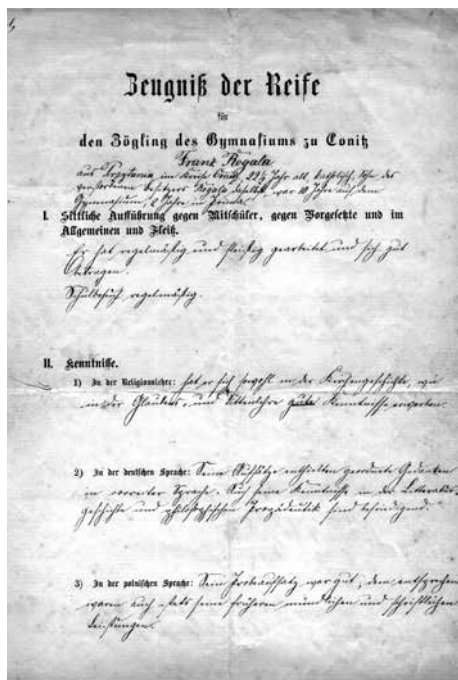 Zeugniß der Reife
für
den Zögling des Gymnasiums zu Conitz
Franz Rogala
aus Przytarnia im Kreise Conitz, 22¼ Jahr alt, katholisch, Sohn des
verstorbenen Besitzers Rogala daselbst, war 10 Jahre auf dem
Gymnasium, 2 Jahre in Prima.
I. Sittliche Aufführung gegen Mitschüler, gegen Vorgesetzte und im
Allgemeinen und Fleiß.
Er hat regelmäßig und fleißig gearbeitet und sich gut
betragen.
Schulbesuch regelmäßig.
II. Kenntnisse.
1) In der Religionslehre: hat er sich sowohl in der Kirchengeschichte, wie
in der Glaubens- und Sittenlehre gute Kenntnisse erworben.
2) In der deutschen Sprache: Seine Aufsätze enthielten geordnete Gedanken
in correcter Sprache. Auch seine Kenntnisse in der Litteratur-
geschichte und philosophischen Propädeutik sind befriedigend.
3) In der polnischen Sprache: Sein Probeaufsatz war gut; dem entsprechend
waren auch stets seine früheren mündlichen und schriftlichen
Leistungen.